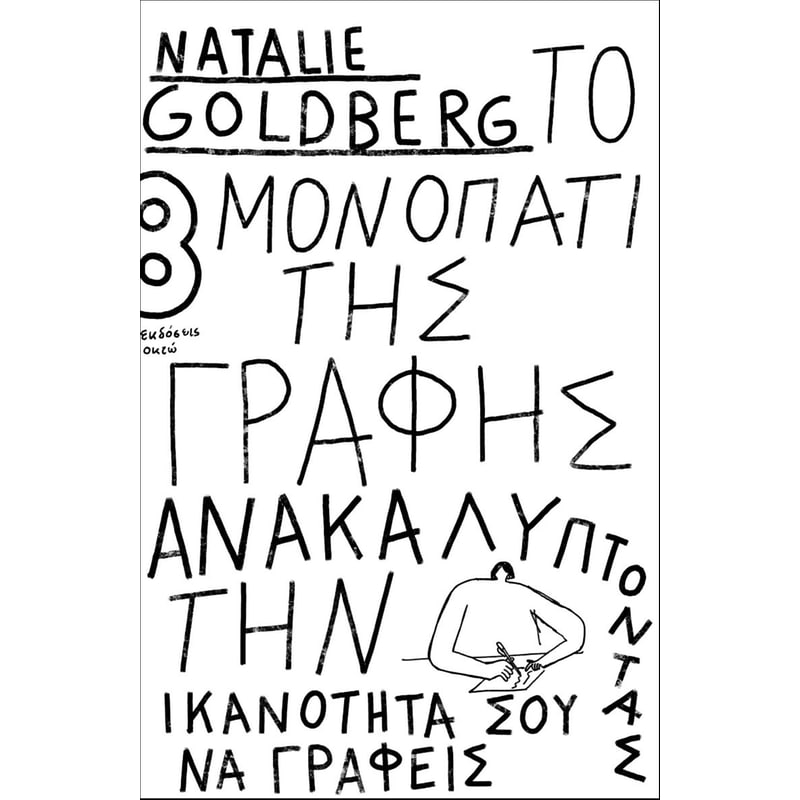 NATALIE
GOLDBERG
ΤΟ
ΜΟΝΟΠΑΤΙ
ΤΗΣ
ΓΡΑΦΗΣ
ΑΝΑΚΑΛΥΠΤΟΝΤΑΣ
ΤΗΝ
ΙΚΑΝΟΤΗΤΑ ΣΟΥ
ΝΑ ΓΡΑΦΕΙΣ
8
εκδόσεις
οκτώ